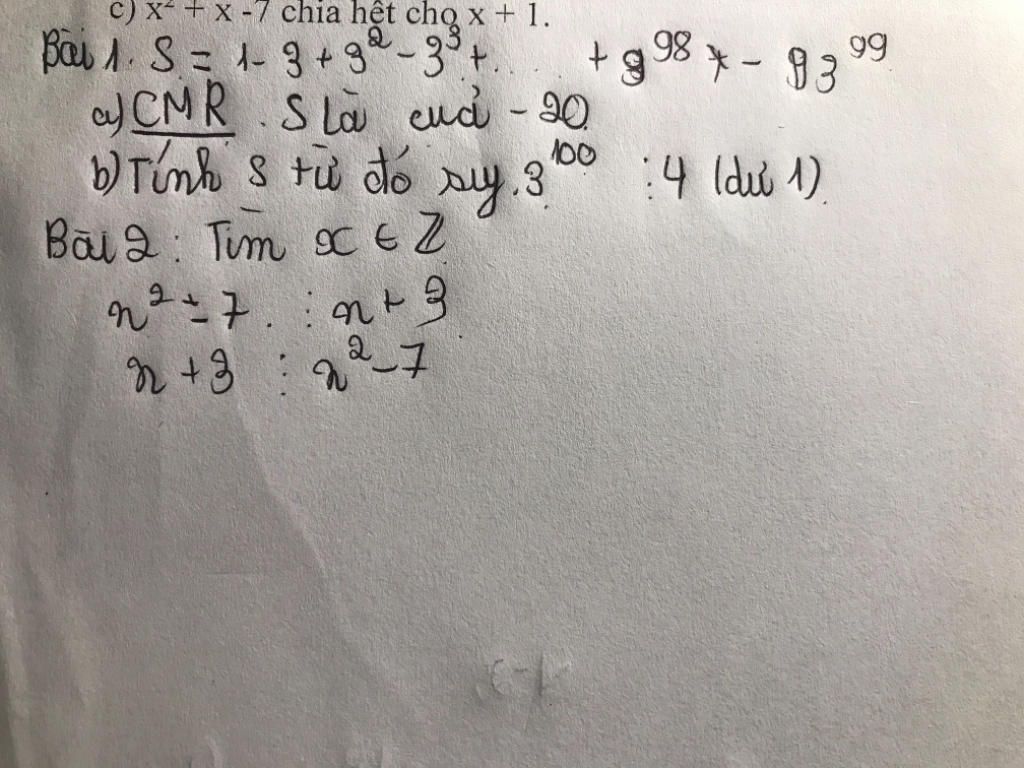 c) x² + x -7 chia hết cho x + 1.
Bài 1. S = 1 - 3 + 3² - 3³ + ... + 3⁹⁸ - 3⁹⁹
a) CMR . S là cuả - 20
b) Tính S từ đó suy. 3¹⁰⁰ : 4 (dư 1)
Bài 2 : Tìm x ∈ Z
n² - 7 . ⋮ n + 3
n + 3 ⋮ n² - 7